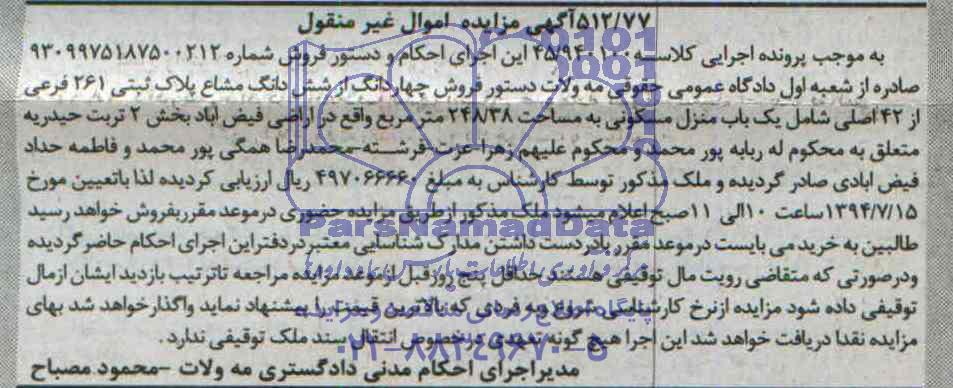 ۵۱۲/۷۷آگهی مزایده اموال غیر منقول
به موجب پرونده اجرایی کلاسه ۴۵/۹۴۰۱۰۰ این اجرای احکام و دستور فروش شماره ۹۳۰۹۹۷۵۱۸۷۵۰۰۲۱۲
صادره از شعبه اول دادگاه عمومی حقوقی مه ولات دستور فروش چهاردانگ از شش دانگ مشاع پلاک ثبتی ۲۶۱ فرعی
از ۴۲ اصلی شامل یک باب منزل مسکونی به مساحت ۲۴۸/۳۸ متر مربع واقع در اراضی فیض اباد بخش ۲ تربت حیدریه
متعلق به محکوم له ربابه پور محمد و محکوم علیهم زهرا-عزت-فرشته-محمدرضا همگی پور محمد و فاطمه حداد
فیض ابادی صادر گردیده و ملک مذکور توسط کارشناس به مبلغ ۴۹۷۰۶۶۶۶۰ ریال ارزیابی کردیده لذا باتعیین مورخ
۱۳۹۴/۷/۱۵ساعت ۱۰الی ۱۱صبح اعلام میشود ملک مذکور ازطریق مزایده حضوری درموعد مقرربفروش خواهد رسید
طالبین به خرید می بایست درموعد مقرر بادردست داشتن مدارک شناسایی معتبردردفتراین اجرای احکام حاضرگردیده
ودرصورتی که متقاضی رویت مال توقیفی هستند حداقل پنج روزقبل ازموعد مزایده مراجعه تاترتیب بازدید ایشان ازمال
توقیفی داده شود مزایده ازنرخ کارشناسی شروع وبه فردی که بالاترین قیمت را پیشنهاد نماید واگذارخواهد شد بهای
مزایده نقدا دریافت خواهد شد این اجرا هیچ گونه تعهدی درخصوص انتقال سند ملک توقیفی ندارد.
مدیراجرای احکام مدنی دادگستری مه ولات -محمود مصباح
ParsNamadData
۰۲۱-۸۸۳۴۹۶۷۰-۵